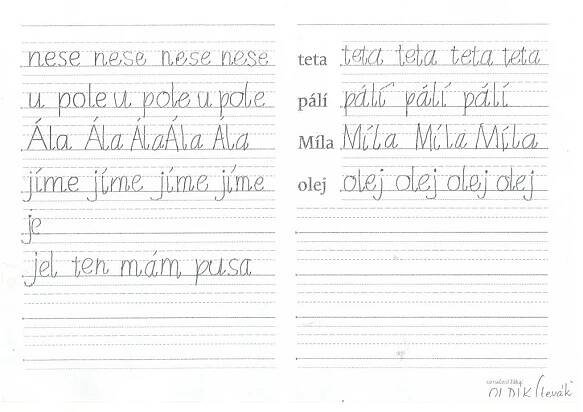 nese nese nese nese
u pole u pole u pole
Ála Ála Ála Ála Ála
jíme jíme jíme jíme
je
jel ten mám pusa
teta teta teta teta teta
pálí pálí pálí pálí
Míla Míla Míla Míla
olej olej olej olej olej
levák